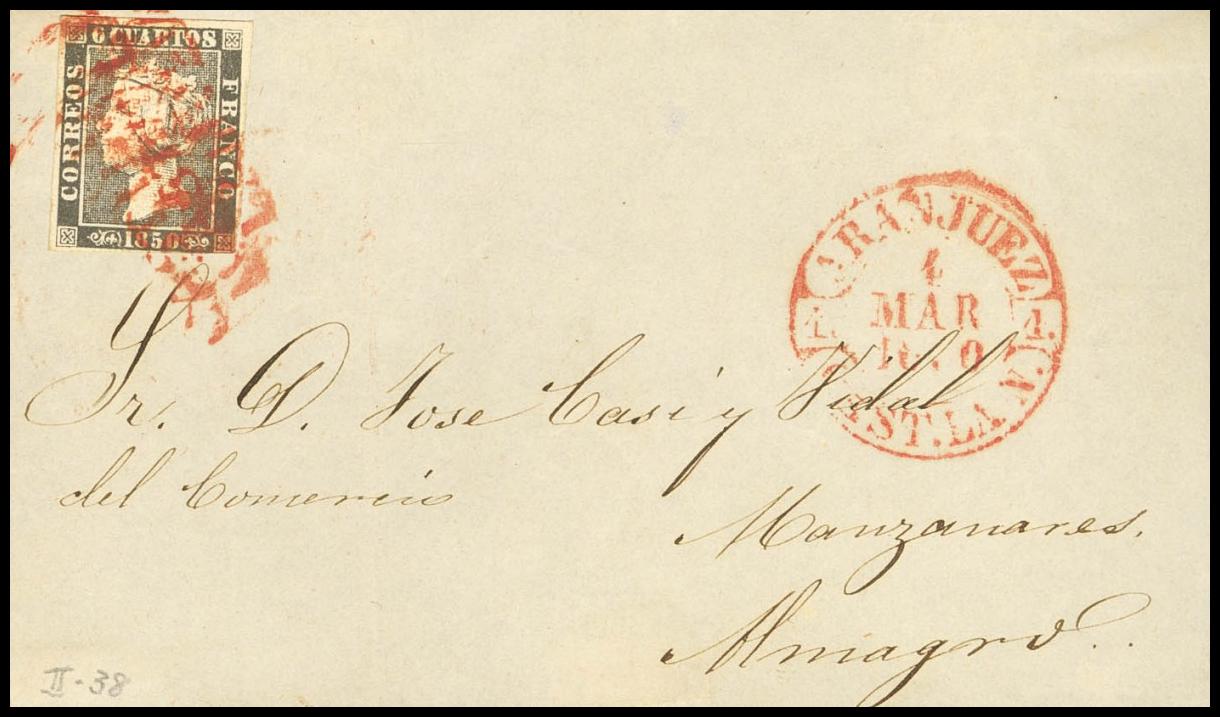 6 CUARTOS
CORREOS
FRANCO
1850
ARANJUEZ
4
MAR
1850
4.
4.
EST. LA N.
Sr. D. Jose Casi y Vidal
del Comercio
Manzanares.
Almagro..
II-38